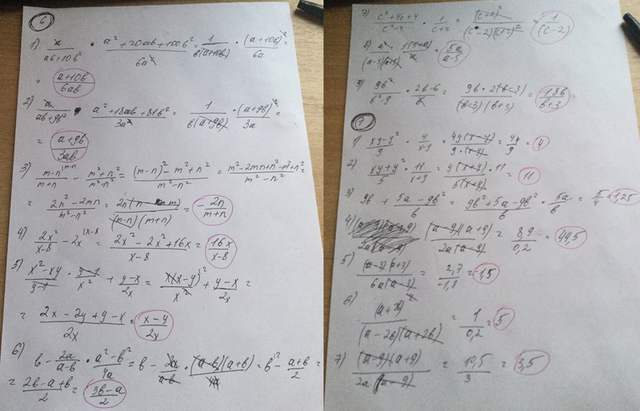 6
1) a/(ab+10b²) · (a²+20ab+100b²)/(6a²) = 1/(b(a+10b)) · (a+10b)²/(6a) =
= (a+10b)/(6ab)
2) a/(ab+9b²) · (a²+18ab+81b²)/(3a²) = 1/(b(a+9b)) · (a+9b)²/(3a) =
= (a+9b)/(3ab)
3) (m-n)/(m+n) - (m²+n²)/(m²-n²) = ((m-n)²-m²+n²)/(m²-n²) = (m²-2mn+n²-m²+n²)/(m²-n²)
= (2n²-2mn)/(m²-n²) = / ((m-n)(m+n)) = -2n/(m+n)
4) 2x²/(x-8) - 2x = (2x²-2x²+16x)/(x-8) = 16x/(x-8)
5) (x²-xy)/(y-1) · (y-1)/x² + (y-x)/(2x) = x(x-y)/x² + (y-x)/(2x) =
= (2x-2y+y-x)/(2x) = (x-y)/(2x)
6) b - 2a/(a-b) · (a²-b²)/(4a) = b - 2a/(a-b) · (a-b)(a+b)/(4a) = b - (a+b)/2 =
= (2b-a+b)/2 = (3b-a)/2
7) (c²+4c+4)/(c²-4) · 1/(c+2) = (c+2)²/((c-2)(c+2)²) = 1/(c-2)
= 5a/(a-5)
9) 9b²/(b²-9) · = = 18b/(b+3)
= 4y/9 · = 4
2) = 11
3) 9b + (5a-9b²)/b = (9b²+5a-9b²)/b = 5a/b = 5/4 = 1,25
4) (a-9)(a+9)/(2a(a-9)) = 8,9/0,2 = 44,5
5) (a-3)(a+3)/(6a(a-3)) = 2,7/-1,8 = -1,5
6) /((a-2b)(a+2b)) = 1/0,2 = 5
7) (a-9)(a+9)/(2a(a-9)) = 10,5/3 = 3,5